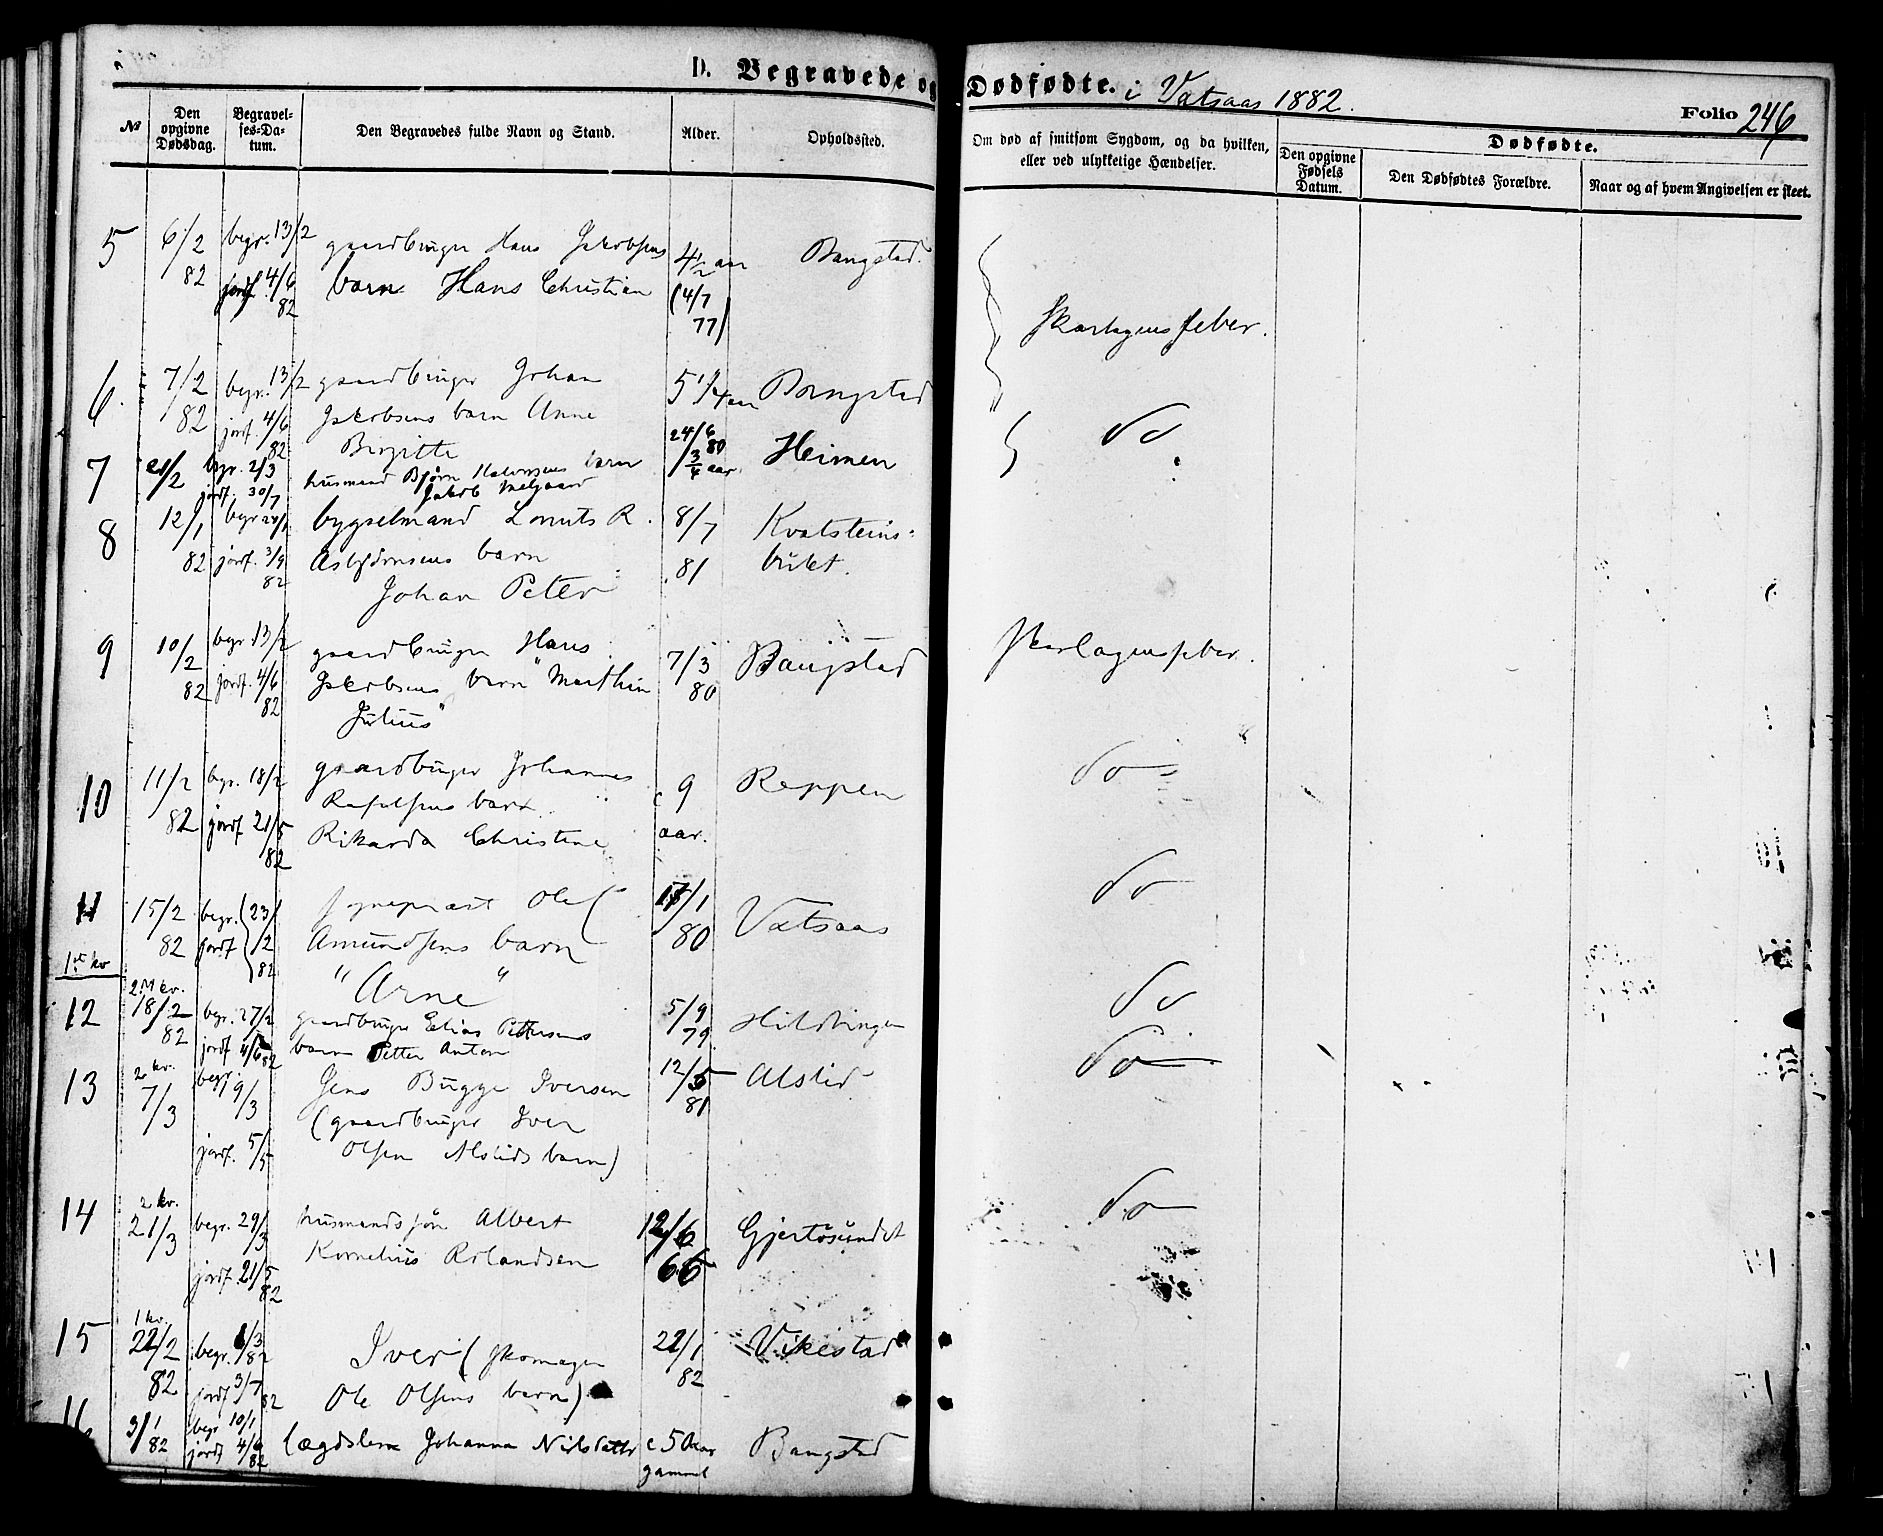 D. Begravede og Dødfødte. i Vatsaas 1882.
Folio 246
No
Den opgivne Dødsdag.
Begravelses-Datum.
Den Begravedes fulde Navn og Stand.
Alder.
Opholdssted.
Om død af smitsom Sygdom, og da hvilken, eller ved ulykkelige Hændelser.
Dødfødte.
Den opgivne Fødsels Datum.
Den Dødfødtes Forældre.
Naar og af hvem Angivelsen er skeet.
5 6/2 begr. 13/2 gaardbruger Hans Jakobsens 4 1/2 aar Bangstad.
82 jordf. 4/6 barn Hans Christian (4/7
82 77)
Skarlagensfeber.
6. 7/2 begr. 13/2 gaardbruger Johan 5 1/4 aar Bangstad
82 jordf. 4/6 Jakobsens barn Anne
82 Birgitte 24/6 80
Do
7 21/2 begr. 2/3 husmand Bjørn Halvorsens barn 3/4 aar. Heimen
jordf. 30/7 Jakob
8 12/1 begr. bygselmand R. 8/7 Kvalsteins=
82 jordf. 3/9 Asbjørnsens barn 81
82 Johan Peter
9 10/2 begr. 13/2 gaardbruger Hans 7/3 Bangstad Skarlagensfeber.
82 jordf. 4/6 Jakobsens barn "Marthin 80
82 Julius"
10 11/2 begr. 18/2 gaardbruger Johannes c 9 Reppen Do
82 jordf. 21/5 barn aar.
82 Rikarda Christine
11 15/2 begr. 23/2 Ole 17/1 Vatsaas Do
82 jordf. 82 Amundsens barn 80
1st kv "Arne"
2 kv.
12 18/2 begr. 27/2 gaardbruger Elias Pettersens 5/9 Hildringen Do
82 jordf. 4/6 82 barn Petter Anton 79
2 kv.
13 7/3 begr. 19/3 Jens Bugge Iversen 12/5 Alstid Do
(gaardbruger Iver 81
jordf. 5/5 Olsen Alstids barn)
2 kv.
14 21/3 begr. 29/3 husmandssøn Albert 12/6 Gjertøsundet Do
jordf. 21/5 Kornelius Rolandsen 66
82
1 kv.
15 22/2 begr. 1/3 82 Iver (skomager 22/1 Vikestad
82 jordf. 3/7 82 Ole Olsens barn) 82
16 3/1 begr. 10/1 lægdslem Johanna Nilsdatter c 50 aar Bangstad
82 jordf. 4/6 82 gammel